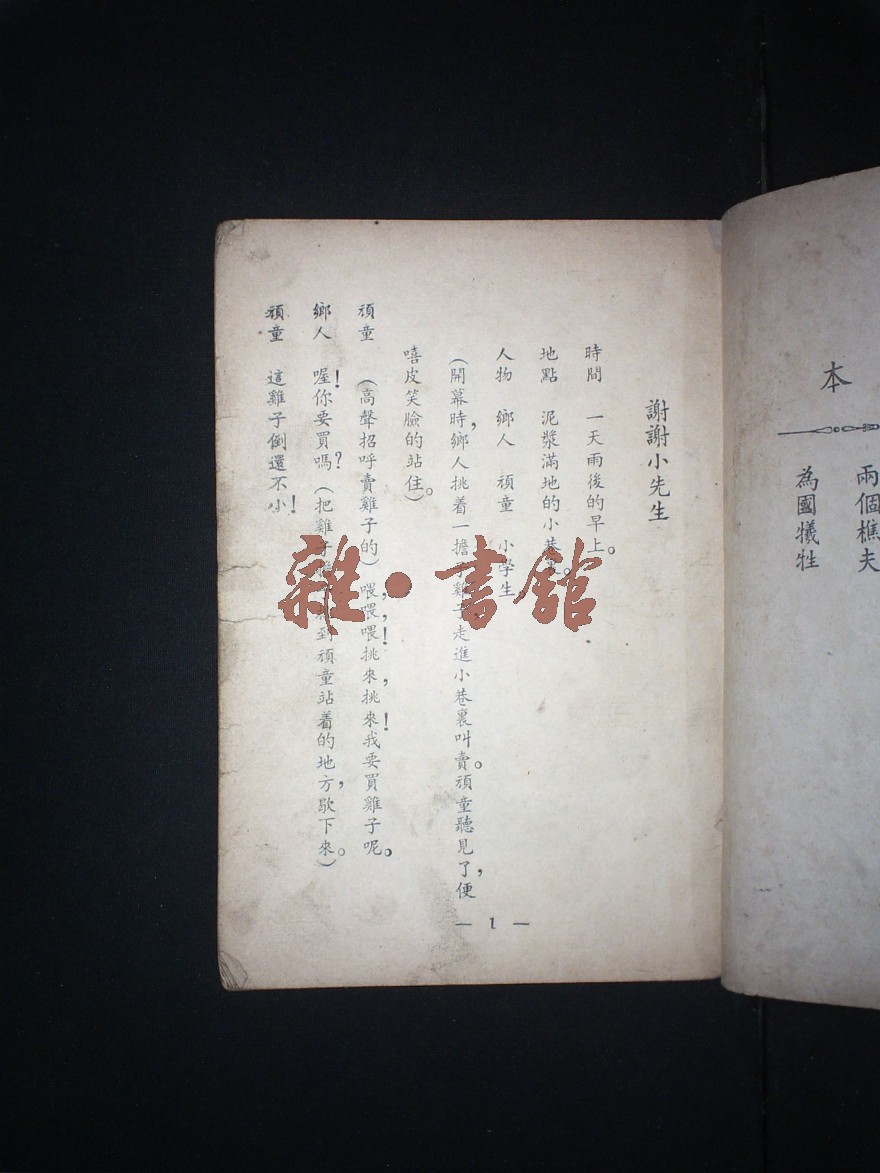 本
兩個樵夫
為國犧牲
謝謝小先生
時間 一天雨後的早上。
地點 泥漿滿地的小巷裏。
人物 鄉人 頑童 小學生
(開幕時,鄉人挑着一擔子雞子走進小巷裏叫賣。頑童聽見了,便
嘻皮笑臉的站住。)
頑童 (高聲招呼賣雞子的)喂,喂,喂!挑來,挑來!我要買雞子呢。
鄉人 喔!你要買嗎?(把雞子 到頑童站着的地方,歇下來。)
頑童 這雞子倒還不小!
— 1 —
雜·書館